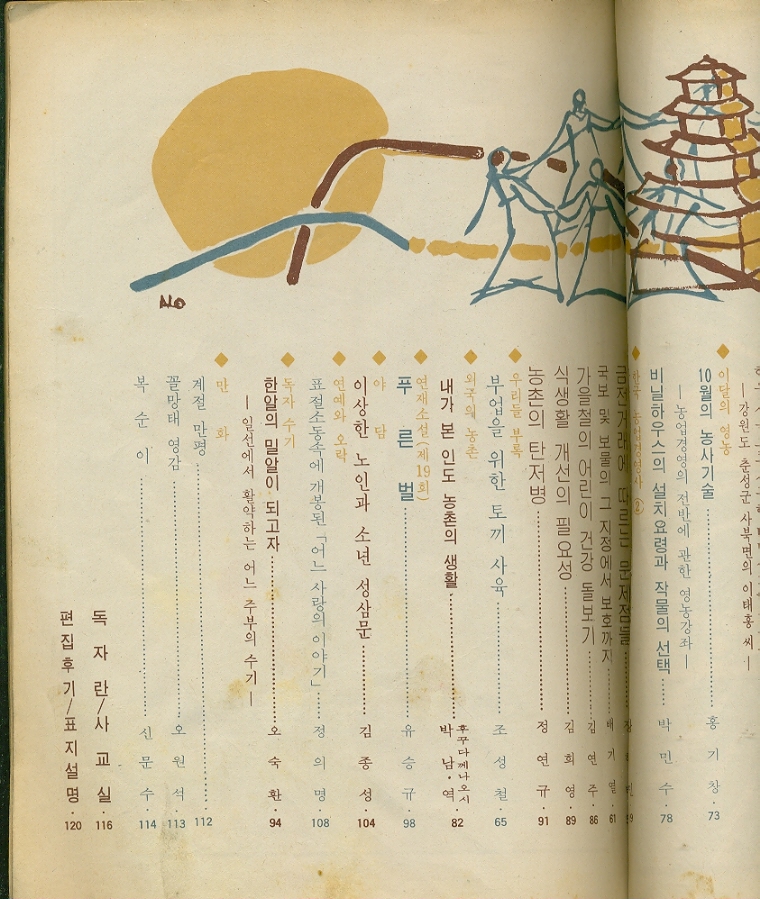 ―강원도 춘성군 사북면의 이태흥 씨―
이달의 영농
10월의 농사기술 홍기창·73
―농업경영의 전반에 관한 영농강좌―
비닐하우스의 설치요령과 작물의 선택 박민수·78
한국 농업경영사 ②
금전거래에 따르는 문제점들
국보 및 보물의 그 지정에서 보호까지 배기열·61
가을철의 어린이 건강 돌보기 김연주·86
식생활 개선의 필요성 김희영·89
농촌의 탄저병 정연규·91
우리들 부록
부업을 위한 토끼 사육 조성철·65
외국의 농촌
내가 본 인도 농촌의 생활 후꾸다께나오시 박남·역 82
연재소설(제19회)
푸른 벌 유승규·98
야담
이상한 노인과 소년 성삼문 김종성·104
연예와 오락
표절소동속에 개봉된 「어느 사랑의 이야기」 정의명·108
독자 수기
한알의 밀알이 되고자 오숙환·94
―일선에서 활약하는 어느 주부의 수기―
만화
계절 만평 112
꼴망태 영감 오원석·113
복순이 신문수·114
독자란/사교실·116
편집후기/표지설명·120